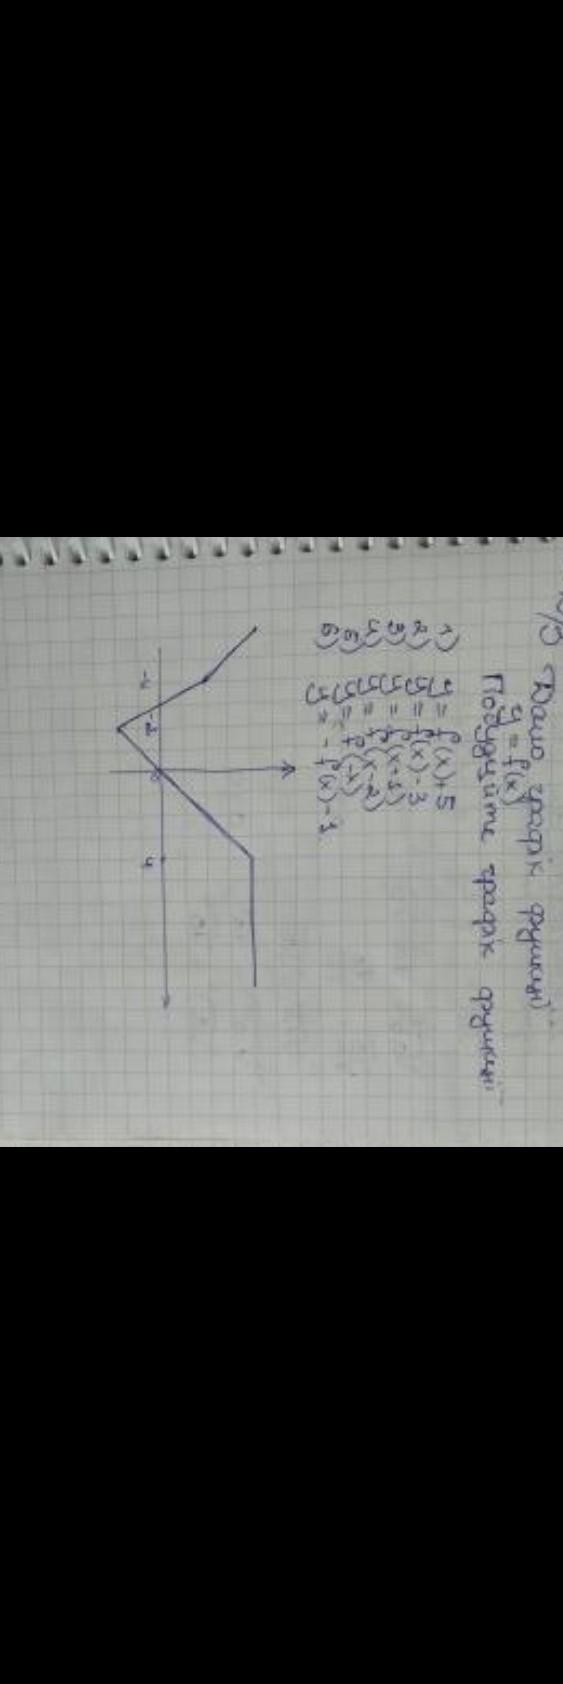 Дано графік функції
y = f(x)
Побудуйте графік функції
1) y = f(x)+5
2) y = f(x)-3
3) y = f(x+1)
4) y = f(x-2)
5) y = f(-x)
6) y = -f(x)-1
-4 -2 0 4